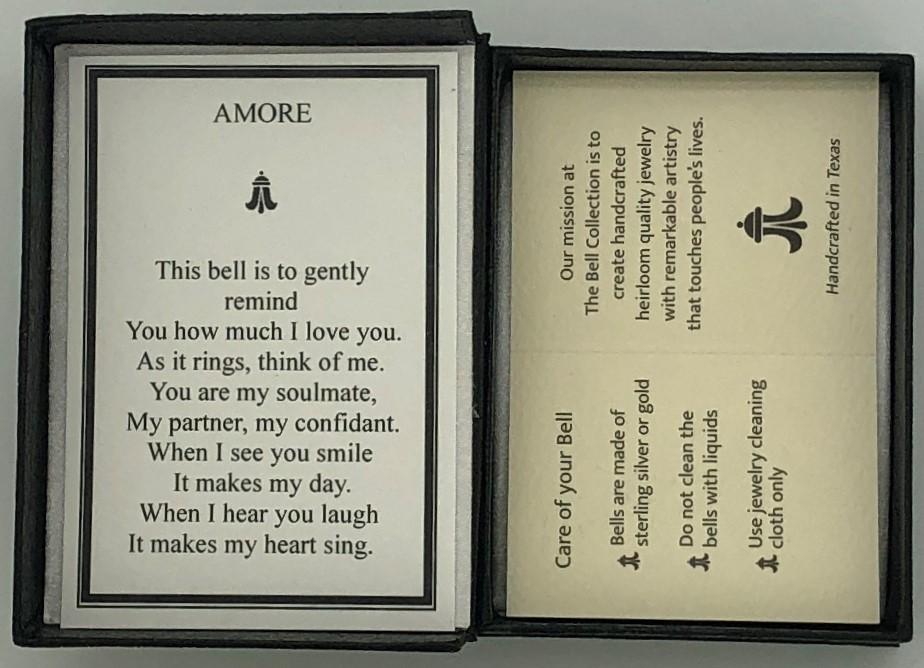 AMORE
This bell is to gently
remind
You how much I love you.
As it rings, think of me.
You are my soulmate,
My partner, my confidant.
When I see you smile
It makes my day.
When I hear you laugh
It makes my heart sing.
Our mission at
The Bell Collection is to
create handcrafted
heirloom quality jewelry
with remarkable artistry
that touches people's lives.
Handcrafted in Texas
Care of your Bell
Bells are made of
sterling silver or gold
Do not clean the
bells with liquids
Use jewelry cleaning
cloth only